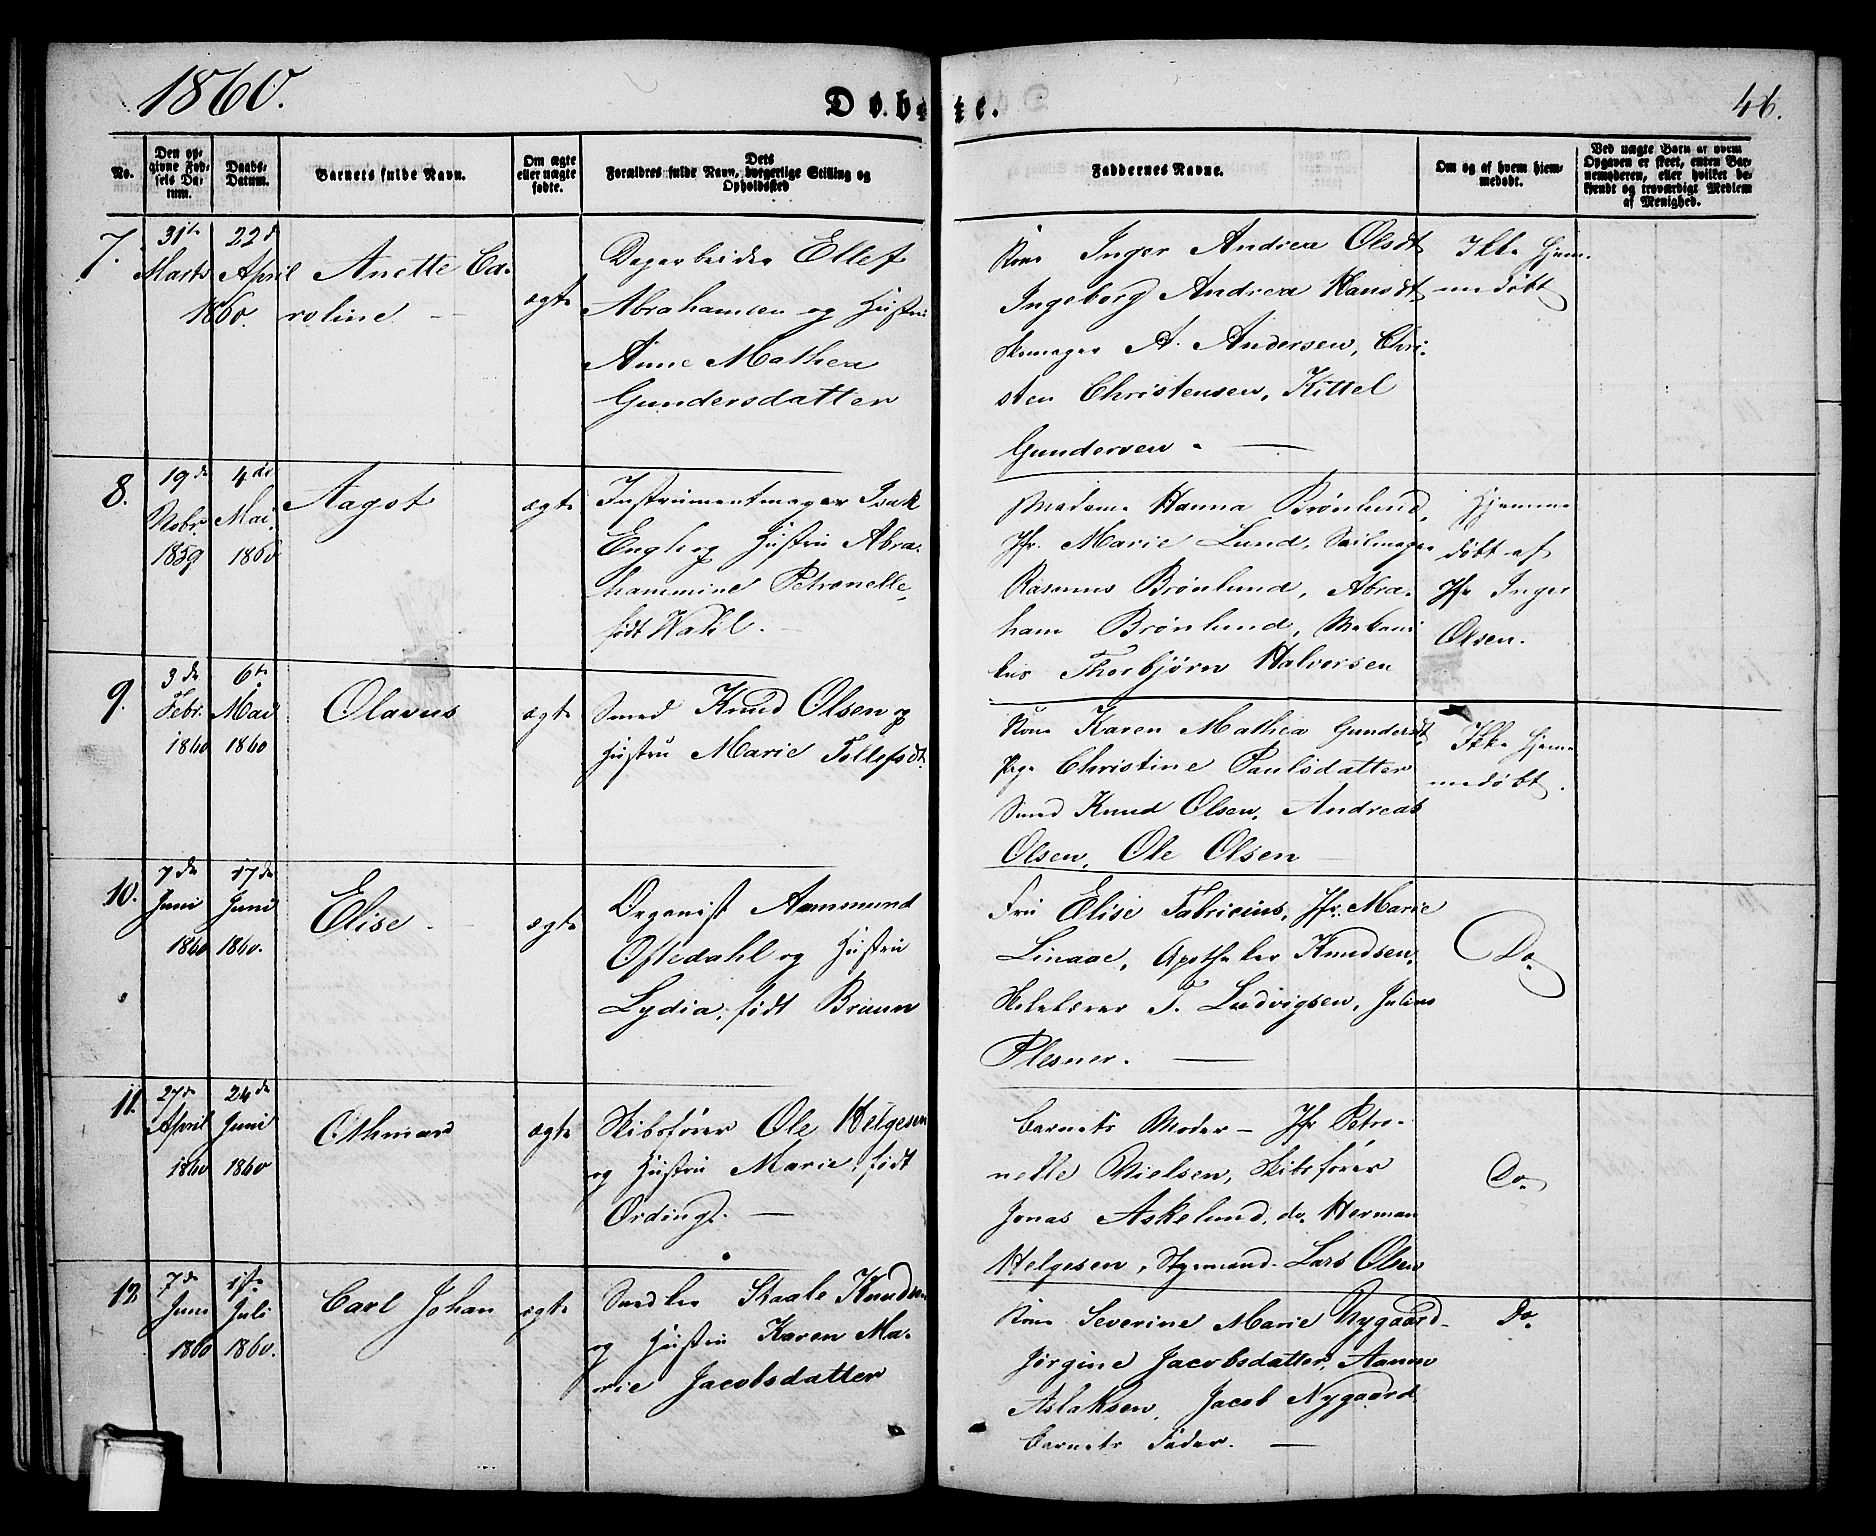 1860.
Døbte.
46.
No.
Den op-
givne Fød-
sels Da-
tum.
Daabs-
Datum.
Barnets fulde Navn.
Om ægte
eller uægte
fødte.
Dets
Forældres fulde Navn, borgerlige Stilling og
Opholdssted
Faddernes Navne.
Om og af hvem hjem-
medøbt.
Ved uægte Barn af hvem
Opgaven er skeet, enten Bar-
nemoderen, eller hvilket be-
kjendt og troværdigt Medlem
af Menighed.
7.
31te
Marts
22d
April
1860.
Anette Ca-
roline
ægte
Dagarbeider Ellef
Abrahamsen og Hustru
Anne Mathea
Gundersdatter
Kone Inger Andrea Olsdt
Ingeborg Andrea Hansdt
Skomager A. Andersen, Chri-
sten Christensen, Kittel
Gundersen.
Ikke Hjem-
medøbt
8.
19de
Nobr.
1859
4de
Mai
1860
Aagot
ægte
Instrumentmager Isak
Engh og Hustru Abra-
hammine Petronelle,
født Wahl.
Madame Hanna Brønlund,
Jfr. Marie Lund, Seilmager
Rasmus Brønlund, Abra-
ham Brønlund, Mekani
kus Thorbjørn Halvorsen
Hjemme
døbt af
Jfr Inger
Olsen.
9.
3de
Febr.
1860
6te
Mai
1860
Olavus
ægte
Smed Knud Olsen og
Hustru Marie Tollefsdt.
Kone Karen Mathea Gundersdt,
Pige Christine Paulsdatter
Smed Knud Olsen, Andreas
Olsen, Ole Olsen
Ikke Hjem
medøbt.
10.
7de
Juni
1860
17de
Juni
1860.
Elise
ægte
Organist Aammund
Oftedahl og Hustru
Lydia, født Bruun
Fru Elise Fabricius, Jfr. Marie
Linaae, Apotheker Knudsen,
Skolelærer T. Ludvigsen, Julius
Plesner.
Do.
11.
27de
April
1860
24de
Juni
1860
Othmar
ægte
Skibsfører Ole Helgesen
og Hustru Marie, født
Ording.
Barnets Moder – Jfr Petro-
nelle Nielsen, Skibsfører
Jonas Askelund, do. Herman
Helgesen, Styrmand Lars Olsen
Do.
12
7de
Juni
1860
1ste
Juli
1860.
Carl Johan
ægte
Snedker Staale Knudsen
og Hustru Karen Ma-
rie Jacobsdatter
Kone Severine Marie Nygaard
Jørgine Jacobsdatter, Aanon
Aslaksen, Jacob Nygaard
Barnets Fader.
Do.